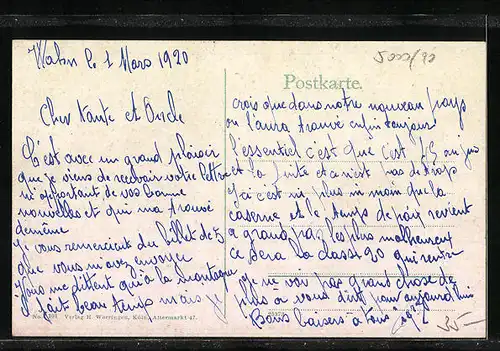 Wahn le 1 Mars 1920
5000/90
Postkarte.
Cher tante et Oncle
C'est avec un grand plaisir
que je viens de recevoir votre lettre
m'apportant de vos bonne
nouvelles et qui ma trouvé
de même
Je vous remercient du billet de 5
que vous m'avez envoyer
Vous me dittent qu'à la montagne
il fait beau temps mais je
crois que dans notre nouveau pays
on l'aura trouvé
l'essentiel c'est que c'est
et la suite et ce n'est pas de trop
ici c'est ni plus ni moin que la
caserne et le temps de paix revient
a grand pas les plus malheureux
ce sera la class 20 qui rentre
je ne voir pas grand chose de
plus a vous dire pour aujourd'hui
Bons baisers a tous
35—
Verlag H. Worringen, Köln, Altermarkt 47.